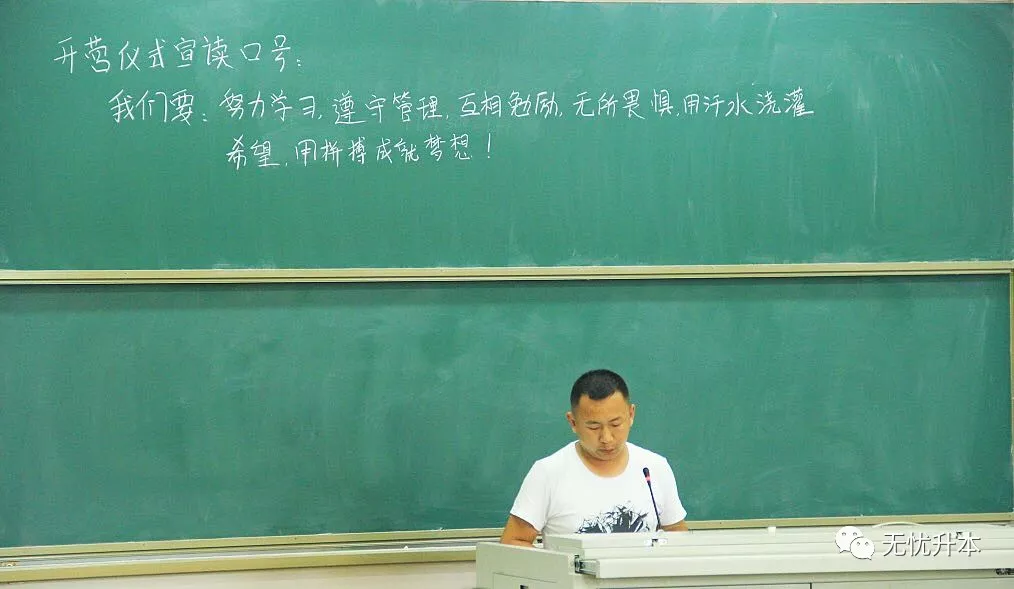 开营仪式宣读口号:
我们要: 努力学习, 遵守管理, 互相勉励, 无所畏惧, 用汗水浇灌
希望, 用拼搏成就梦想!
无忧升本